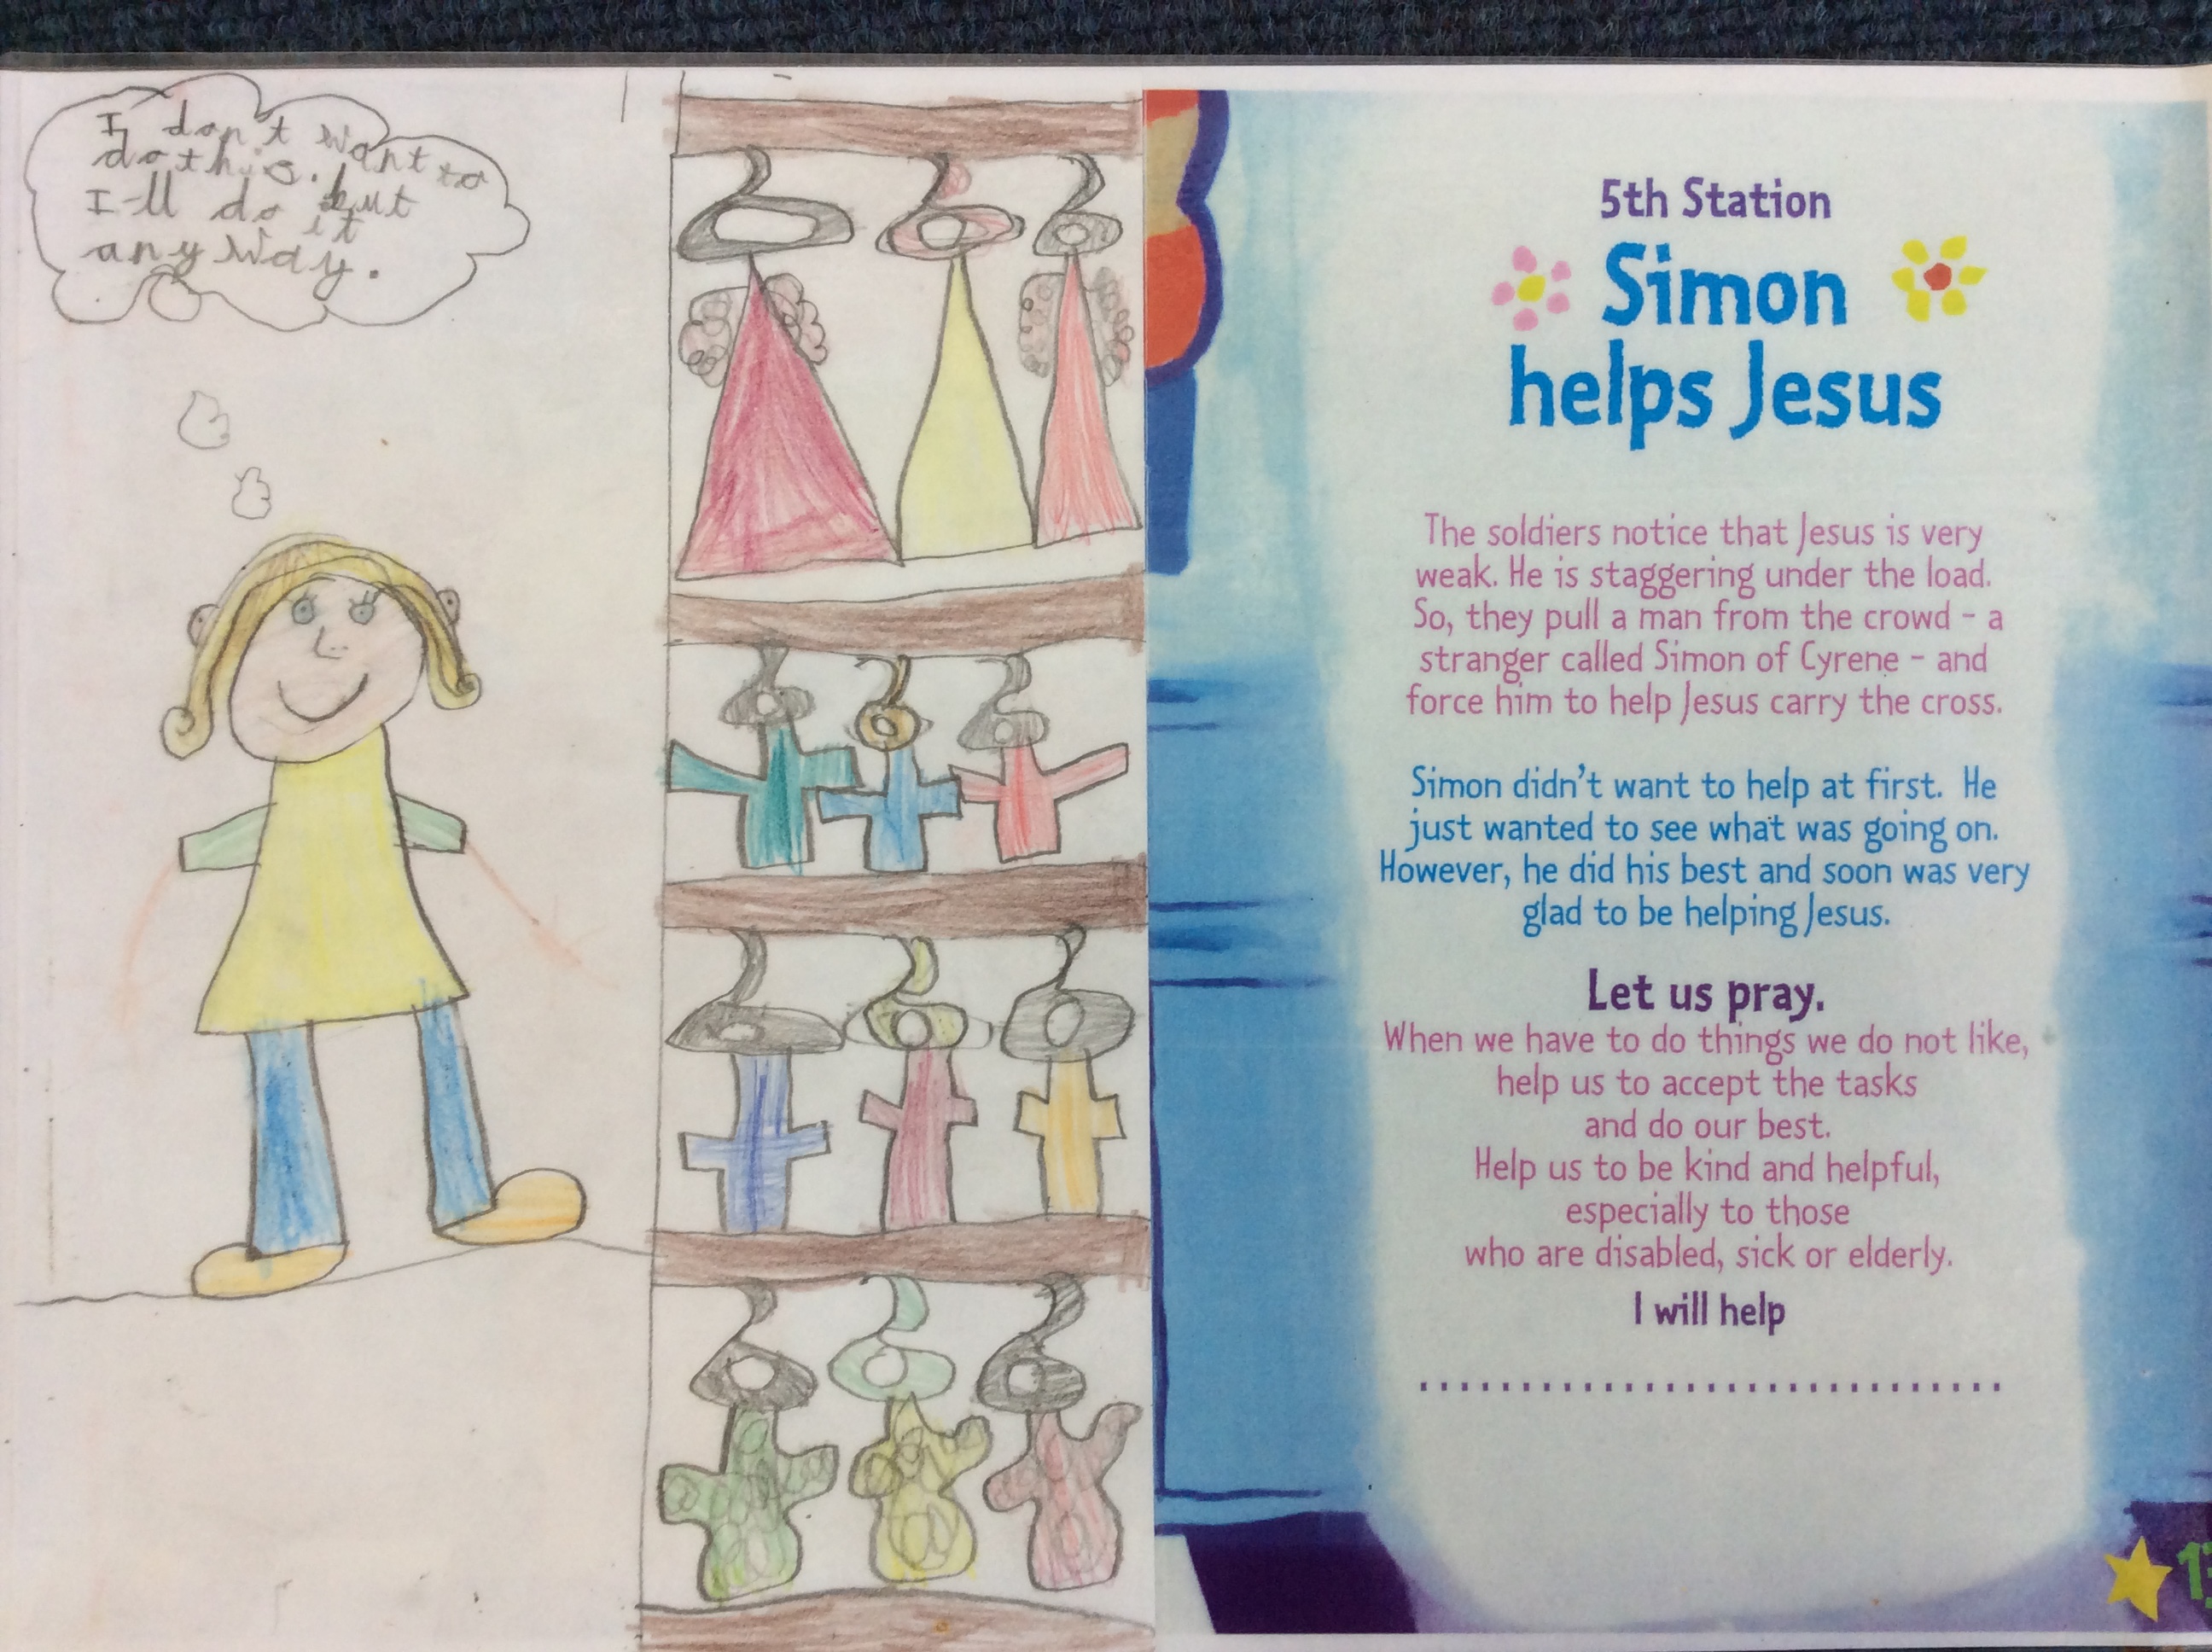 I don't want to
do this. but
I'll do it
anyway.
5th Station
Simon
helps Jesus
The soldiers notice that Jesus is very
weak. He is staggering under the load.
So, they pull a man from the crowd - a
stranger called Simon of Cyrene - and
force him to help Jesus carry the cross.
Simon didn't want to help at first. He
just wanted to see what was going on.
However, he did his best and soon was very
glad to be helping Jesus.
Let us pray.
When we have to do things we do not like,
help us to accept the tasks
and do our best.
Help us to be kind and helpful,
especially to those
who are disabled, sick or elderly.
I will help
..............................